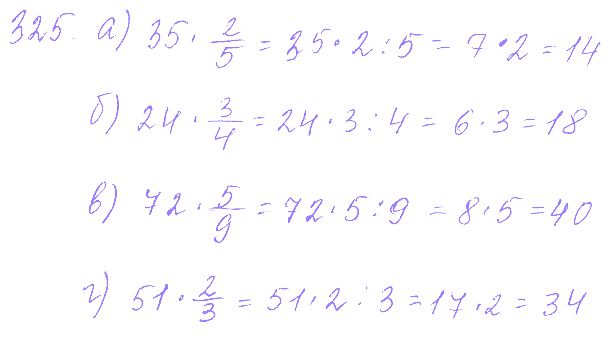 325. а) 35 · 2/5 = 35 · 2 : 5 = 7 · 2 = 14
б) 24 · 3/4 = 24 · 3 : 4 = 6 · 3 = 18
в) 72 · 5/9 = 72 · 5 : 9 = 8 · 5 = 40
г) 51 · 2/3 = 51 · 2 : 3 = 17 · 2 = 34